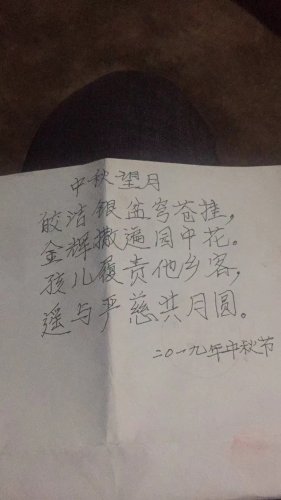 中秋望月
皎洁银盆穹苍挂，
金辉撒遍园中花。
孩儿履责他乡客，
遥与严慈共月圆。
二〇一九年中秋节